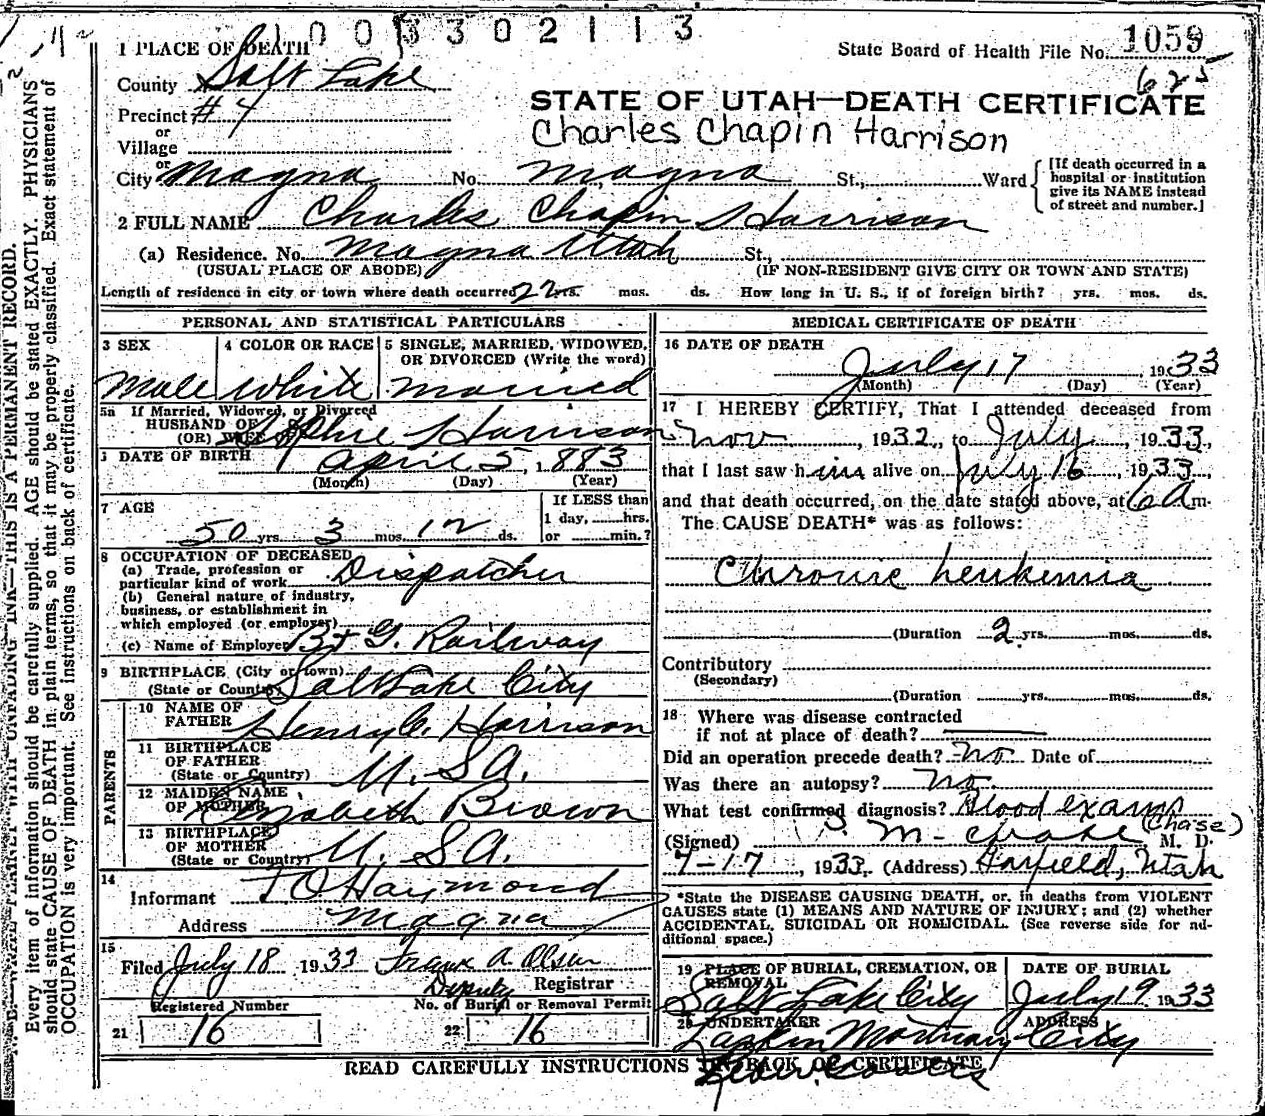 1003302113
1 PLACE OF DEATH
State Board of Health File No. 1059
County Salt Lake
625
Precinct #4
STATE OF UTAH—DEATH CERTIFICATE
or
Charles Chapin Harrison
Village
or
City Magna No. Magna St., Ward
[If death occurred in a hospital or institution give its NAME instead of street and number.]
2 FULL NAME Charles Chapin Harrison
(a) Residence. No. Magna Utah St.,
(USUAL PLACE OF ABODE) (IF NON-RESIDENT GIVE CITY OR TOWN AND STATE)
Length of residence in city or town where death occurred 22 yrs. mos. ds. How long in U. S., if of foreign birth? yrs. mos. ds.
PERSONAL AND STATISTICAL PARTICULARS
3 SEX 4 COLOR OR RACE 5 SINGLE, MARRIED, WIDOWED, OR DIVORCED (Write the word)
Male White Married
5a If Married, Widowed, or Divorced
HUSBAND OF
(OR) WIFE OF Sophie Harrison
DATE OF BIRTH April 5, 1883
(Month) (Day) (Year)
7 AGE
50 yrs. 3 mos. 12 ds.
If LESS than
1 day, hrs.
or min.?
8 OCCUPATION OF DECEASED
(a) Trade, profession or
particular kind of work Dispatcher
(b) General nature of industry,
business, or establishment in
which employed (or employer)
(c) Name of Employer B + G. Railway
9 BIRTHPLACE (City or town)
(State or Country) Salt Lake City
PARENTS
10 NAME OF
FATHER Henry C. Harrison
11 BIRTHPLACE
OF FATHER
(State or Country) U. S A.
12 MAIDEN NAME
OF MOTHER Elizabeth Brown
13 BIRTHPLACE
OF MOTHER
(State or Country) U. S A.
14
Informant T O Haymond
Address Magna
15
Filed July 18 1933 Frank A Olsen
Deputy Registrar
Registered Number No. of Burial or Removal Permit
21 16 22 16
MEDICAL CERTIFICATE OF DEATH
16 DATE OF DEATH
July 17 1933
(Month) (Day) (Year)
17 I HEREBY CERTIFY, That I attended deceased from
Nov, 1932, to July, 1933,
that I last saw him alive on July 16, 1933
and that death occurred, on the date stated above, at 6 A m.
The CAUSE DEATH* was as follows:
Chronic Leukemia
(Duration 2 yrs. mos. ds.
Contributory
(Secondary)
(Duration yrs. mos. ds.
18 Where was disease contracted
if not at place of death?
Did an operation precede death? no Date of
Was there an autopsy? no
What test confirmed diagnosis? Blood exams
(Signed) S. M - Chase (Chase) M. D.
7-17, 1933. (Address) Garfield, Utah
*State the DISEASE CAUSING DEATH, or, in deaths from VIOLENT
CAUSES state (1) MEANS AND NATURE OF INJURY; and (2) whether
ACCIDENTAL, SUICIDAL OR HOMICIDAL. (See reverse side for additional space.)
19 PLACE OF BURIAL, CREMATION, OR REMOVAL DATE OF BURIAL
Salt Lake City July 19 1933
20 UNDERTAKER ADDRESS
Larkin Mortuary City
READ CAREFULLY INSTRUCTIONS ON BACK OF CERTIFICATE
N. B.—WRITE PLAINLY WITH UNFADING INK—THIS IS A PERMANENT RECORD.
Every item of information should be carefully supplied. AGE should be stated EXACTLY. PHYSICIANS
should state CAUSE OF DEATH in plain terms, so that it may be properly classified. Exact statement of
OCCUPATION is very important. See instructions on back of certificate.